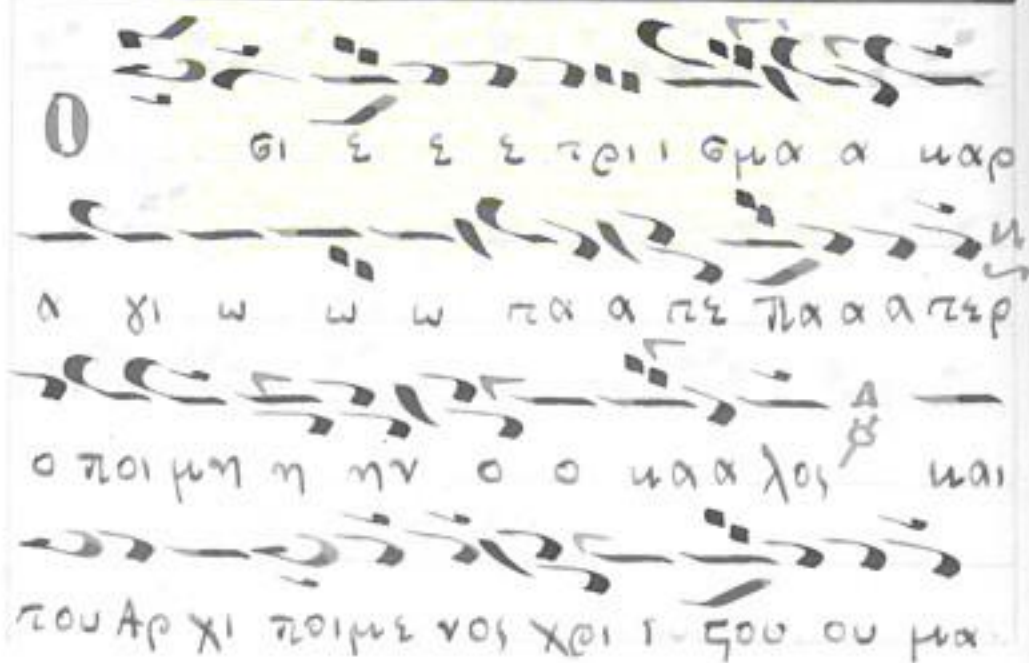 Ο σι ε ε ε τρι ι σμα α καρ
α γι ω ω ω τα α τε πα α α τερ
ο ποι μη η ην ο ο κα α λος και
του Αρ χι ποιμε νος χρι ι ςου ου μα